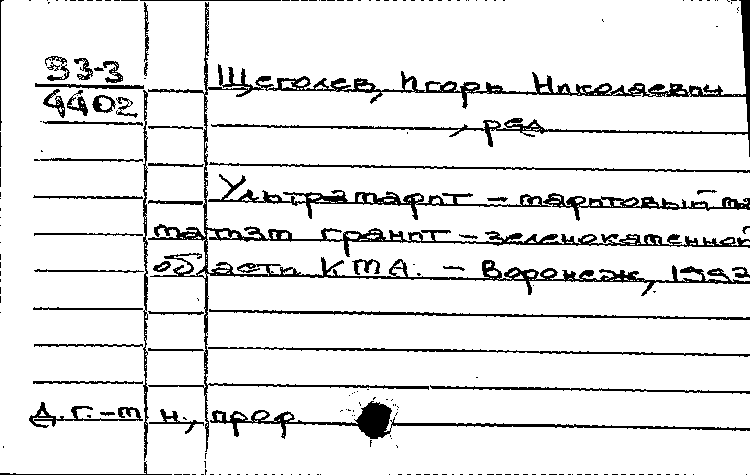 93-3
4402
Щеголев, Игорь Николаевич
, ред
Ультрамафит - мафитовый ма
гматизм гранит-зеленокаменной
области КМА. - Воронеж, 1993
д. г.-м н., проф.